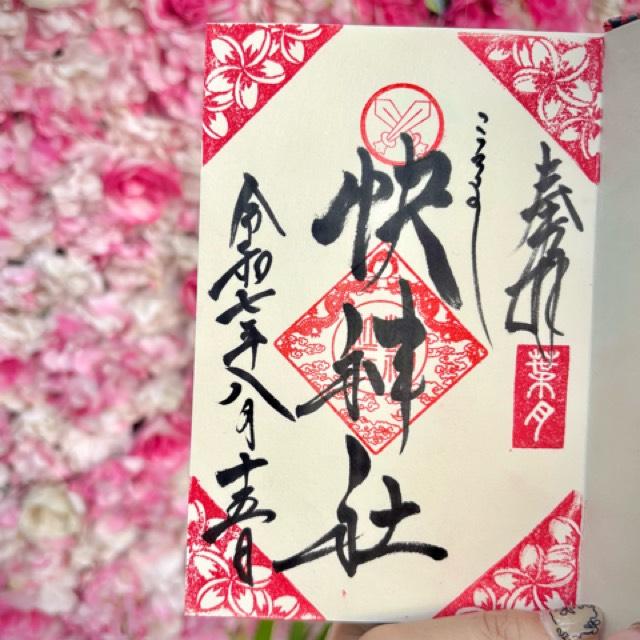 奉拝
葉月
こころよし
快神社
令和七年八月十五日